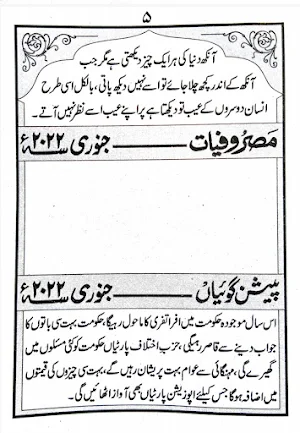 ۵
آنکھ دنیا کی ہر ایک چیز دیکھتی ہے مگر جب
آنکھ کے اندر کچھ چلا جائے تو اسے نہیں دیکھ پاتی، بالکل اسی طرح
انسان دوسروں کے عیب تو دیکھتا ہے پر اپنے عیب اسے نظر نہیں آتے۔
مصروفیات ــــــ جنوری ۲۰۲۲ء
پیشن گوئیاں ــــــ جنوری ۲۰۲۲ء
اس سال موجودہ حکومت میں افراتفری کا ماحول رہیگا، حکومت بہت سی باتوں کا
جواب دینے سے قاصر رہیگی، حزب اختلاف پارٹیاں حکومت کو کئی مسئلوں میں
گھیرے گی، مہنگائی سے عوام بہت پریشان رہیں گے، بہت سی چیزوں کی قیمتوں
میں اضافہ ہوگا جس کیلئے اپوزیشن پارٹیاں بھی آواز اٹھائیں گی۔